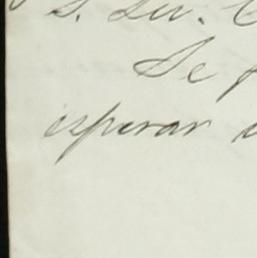 S. Ser.
Se
esperar